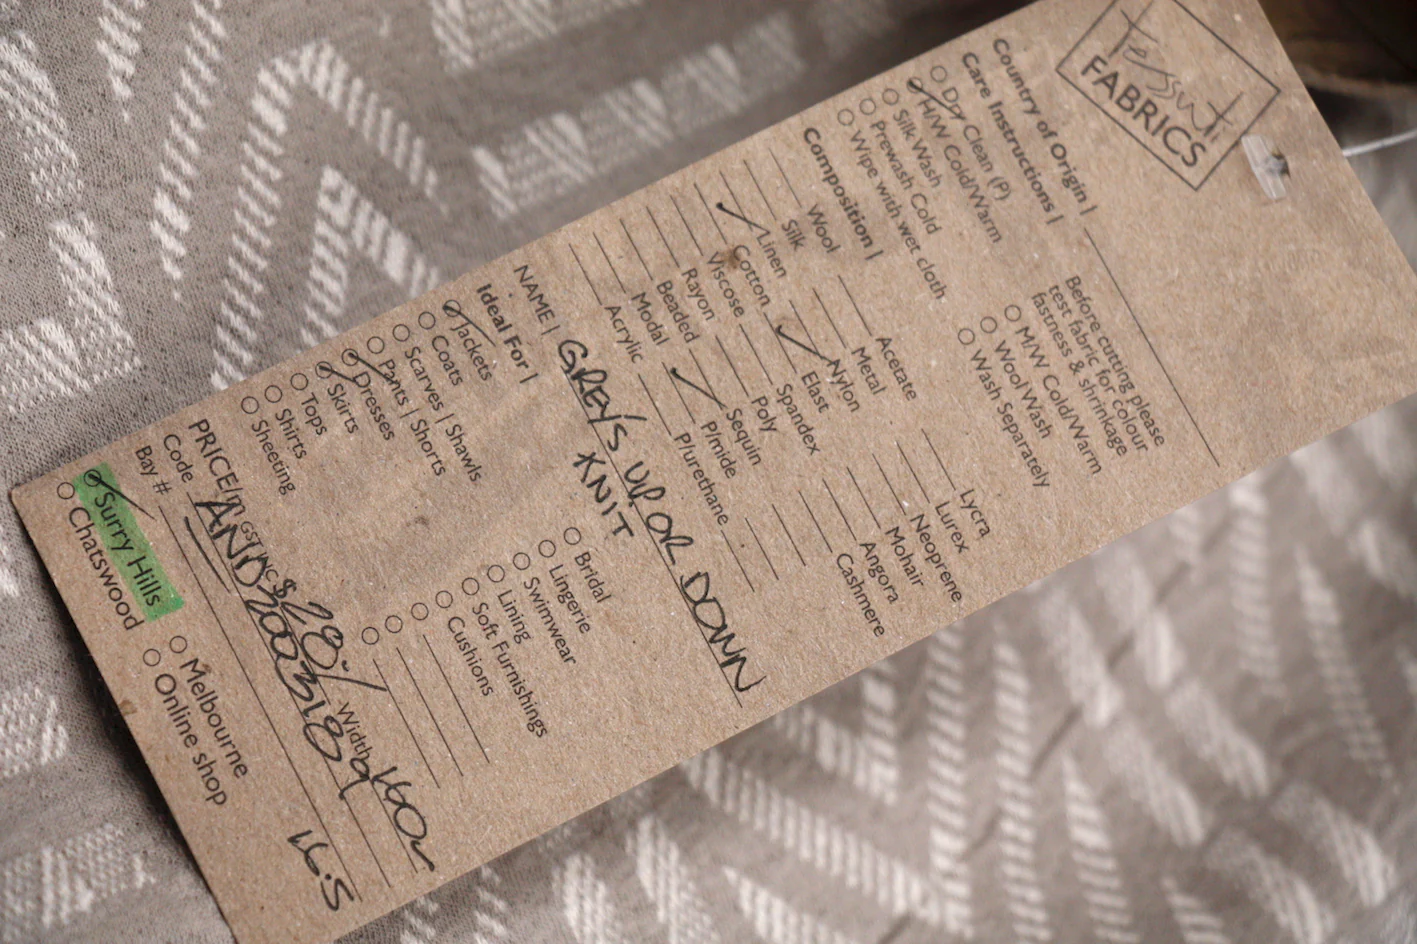 Tessuti
FABRICS
Country of Origin |
Care Instructions |
Dry Clean (P)
H/W Cold/Warm
Silk Wash
Prewash Cold
Wipe with wet cloth
Before cutting please
test fabric for colour
fastness & shrinkage
M/W Cold/Warm
Wool Wash
Wash Separately
Composition |
Wool
Silk
Linen
Cotton
Viscose
Rayon
Beaded
Modal
Acrylic
Acetate
Metal
Nylon
Elast
Spandex
Poly
Sequin
P/mide
P/urethane
Lycra
Lurex
Neoprene
Mohair
Angora
Cashmere
NAME | GREYS UP OR DOWN
KNIT
Ideal For |
Jackets
Coats
Scarves | Shawls
Pants | Shorts
Dresses
Skirts
Tops
Shirts
Sheeting
Bridal
Lingerie
Swimwear
Lining
Soft Furnishings
Cushions
PRICE/m GST INC $28 Width 160
Code
Bay # 16.5
Surry Hills
Chatswood
Melbourne
Online shop